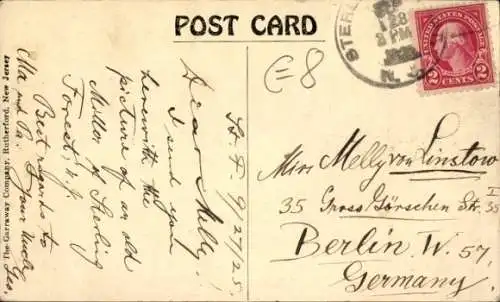 POST CARD
STER
28
2 PM
N. J.
UNITED STATES POSTAGE
2 CENTS 2
E8
St. F. 9/27/25.
Dear Melly!
I send you
herewith the
picture of an old
Miller of Sterling
Forest, N.Y.
Best regards to
Ella and Pa. Your Uncle
Geo.
Miss Melly von Linstow
35 Gross/Görschen Str. 35 I
Berlin W. 57
Germany.
The Garraway Company, Rutherford, New Jersey